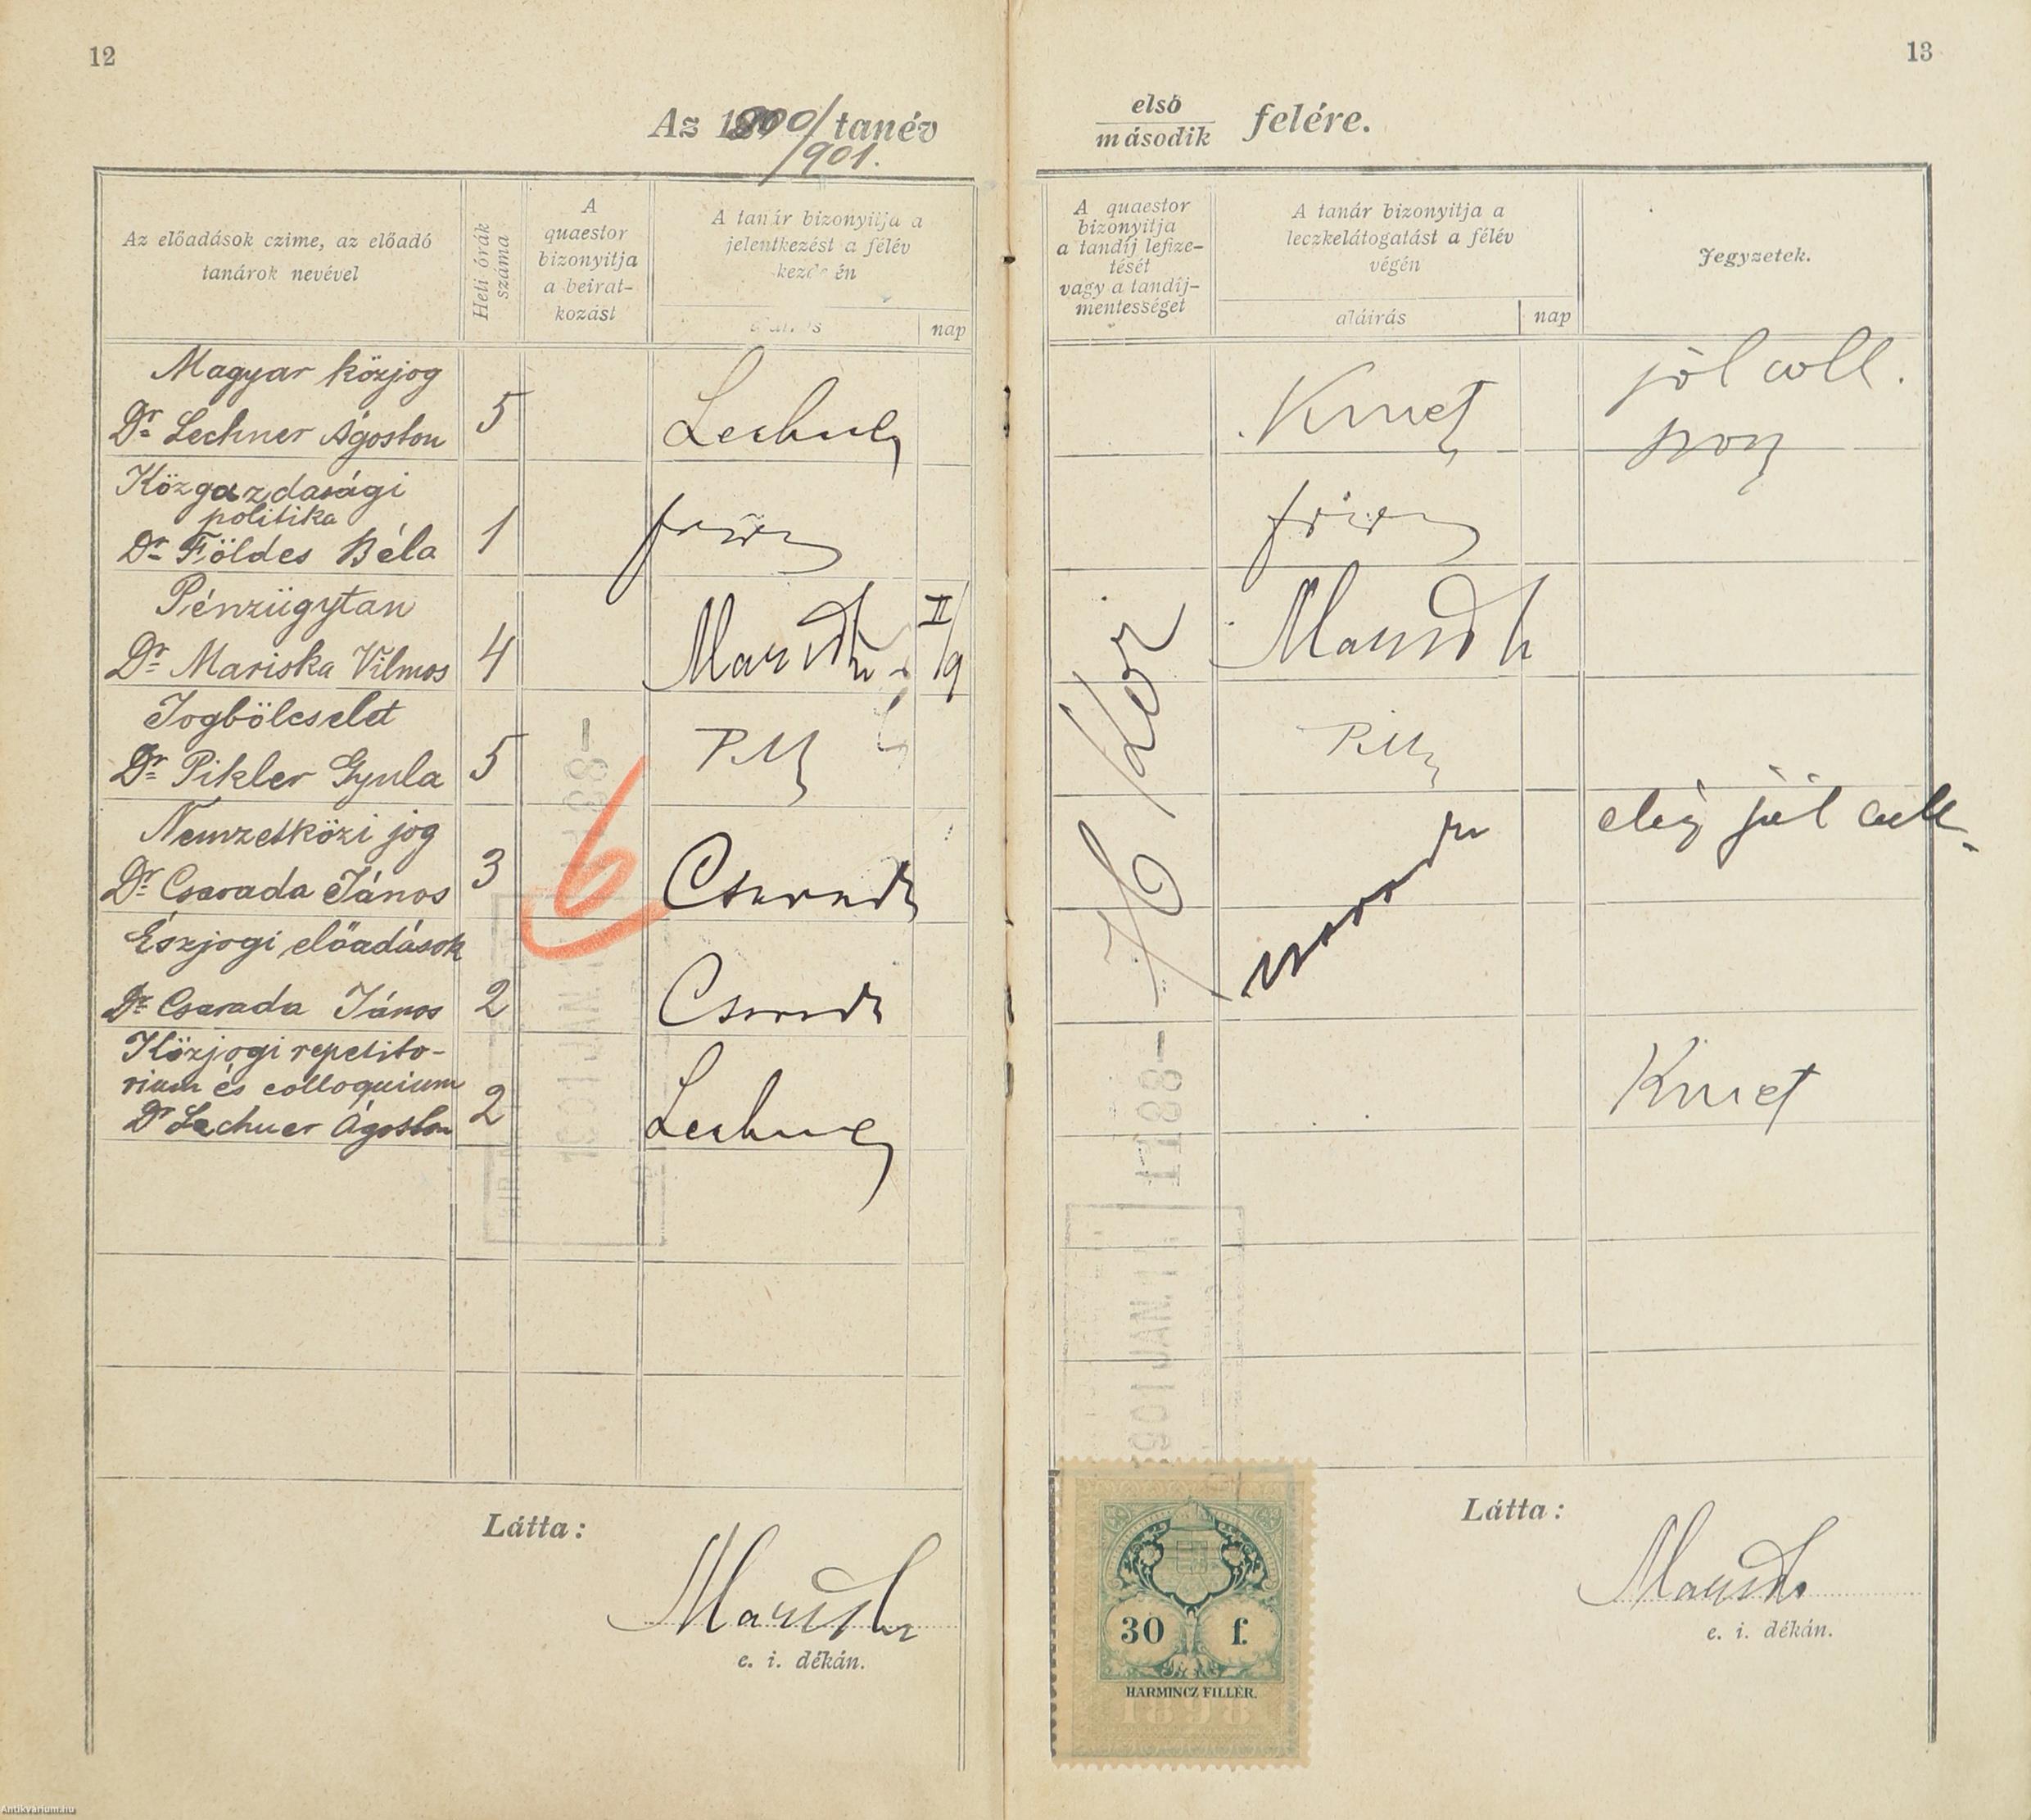 12
Az 1900/901. tanév
Az előadások czime, az előadó
tanárok nevével
Heti órák
száma
A
quaestor
bizonyitja
a beirat-
kozást
A tanár bizonyitja a
jelentkezést a félév
kezdetén
aláirás
nap
Magyar közjog
Dr Lechner Ágoston
5
Lechner
Közgazdasági
politika
Dr Földes Béla
1
Pénzügytan
Dr Mariska Vilmos
4
Mariska
II/9
Jogbölcselet
Dr Pikler Gyula
5
Nemzetközi jog
Dr Csarada János
3
6
Csarada
Észjogi előadások
Dr Csarada János
2
Csarada
Közjogi repetito-
rium és colloquium
Dr Lechner Ágoston
2
Lechner
1901 JAN.
Látta:
Mariska
e. i. dékán.
13
első
második
felére.
A quaestor
bizonyitja
a tandíj lefize-
tését
vagy a tandíj-
mentességet
A tanár bizonyitja a
leczkelátogatást a félév
végén
aláirás
nap
Jegyzetek.
Kmet
jól coll.
Mariska
76 Kor
elég jól coll.
Kmet
1188-
1901 JAN. 1
30 f.
HARMINCZ FILLÉR.
1898
Látta:
Mariska
e. i. dékán.
Antikvárium.hu